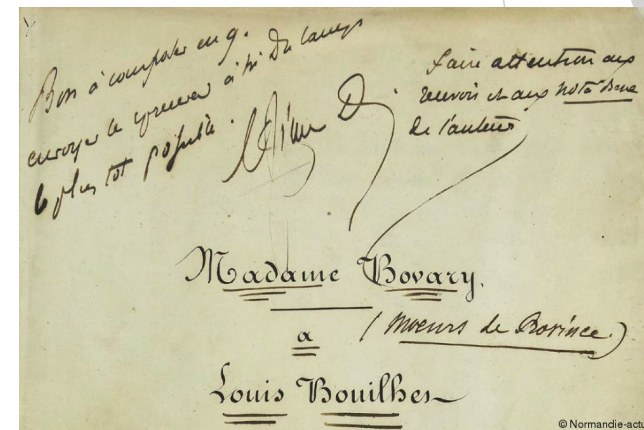 Bon à composer en 9.
envoyer les épreuves à Mr Du Camp
le plus tôt possible.
faire attention aux
renvois et aux nota Bene
de l'auteur
Madame Bovary.
(Moeurs de Province)
a
Louis Bouilhet
© Normandie-actu